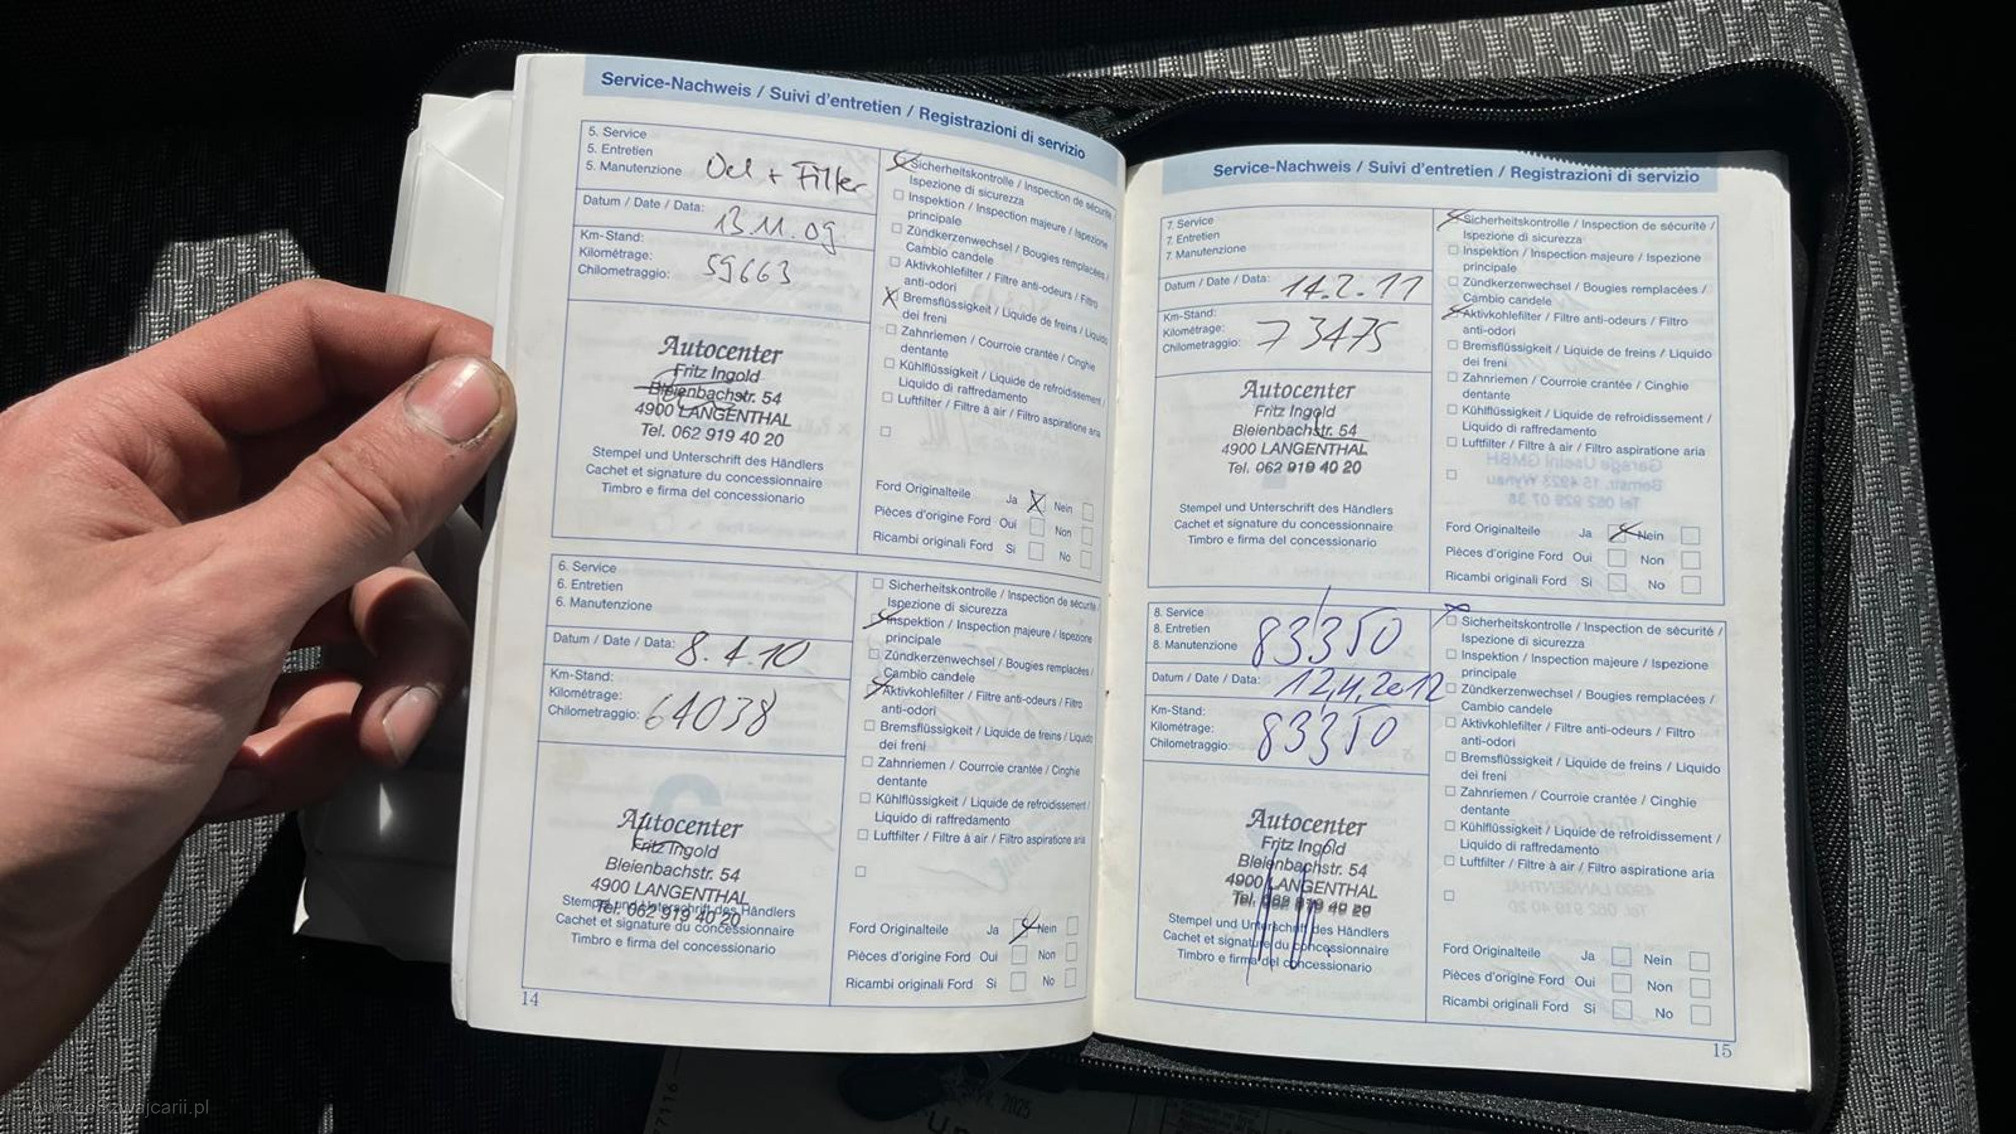 Service-Nachweis / Suivi d'entretien / Registrazioni di servizio
5. Service
5. Entretien
5. Manutenzione
Oel + Filter
Datum / Date / Data: 13.11.09
Km-Stand:
Kilométrage:
Chilometraggio:
59663
Autocenter
Fritz Ingold
Bleienbachstr. 54
4900 LANGENTHAL
Tel. 062 919 40 20
Stempel und Unterschrift des Händlers
Cachet et signature du concessionnaire
Timbro e firma del concessionario
Sicherheitskontrolle / Inspection de sécurité
Ispezione di sicurezza
Inspektion / Inspection majeure / Ispezione
principale
Zündkerzenwechsel / Bougies remplacées /
Cambio candele
Aktivkohlefilter / Filtre anti-odeurs / Filtro
anti-odori
X Bremsflüssigkeit / Liquide de freins / Liquido
dei freni
Zahnriemen / Courroie crantée / Cinghie
dentante
Kühlflüssigkeit / Liquide de refroidissement /
Liquido di raffredamento
Luftfilter / Filtre à air / Filtro aspiratione aria
Ford Originalteile Ja X Nein
Pièces d'origine Ford Oui Non
Ricambi originali Ford Si No
6. Service
6. Entretien
6. Manutenzione
Datum / Date / Data: 8.4.10
Km-Stand:
Kilométrage:
Chilometraggio: 64038
Autocenter
Fritz Ingold
Bleienbachstr. 54
4900 LANGENTHAL
Tel. 062 919 40 20
Stempel und Unterschrift des Händlers
Cachet et signature du concessionnaire
Timbro e firma del concessionario
Sicherheitskontrolle / Inspection de sécurité /
Ispezione di sicurezza
Inspektion / Inspection majeure / Ispezione
principale
Zündkerzenwechsel / Bougies remplacées /
Cambio candele
Aktivkohlefilter / Filtre anti-odeurs / Filtro
anti-odori
Bremsflüssigkeit / Liquide de freins / Liquido
dei freni
Zahnriemen / Courroie crantée / Cinghie
dentante
Kühlflüssigkeit / Liquide de refroidissement /
Liquido di raffredamento
Luftfilter / Filtre à air / Filtro aspiratione aria
Ford Originalteile Ja Nein
Pièces d'origine Ford Oui Non
Ricambi originali Ford Si No
14
Service-Nachweis / Suivi d'entretien / Registrazioni di servizio
7. Service
7. Entretien
7. Manutenzione
Datum / Date / Data: 14.2.11
Km-Stand:
Kilométrage:
Chilometraggio: 73475
Autocenter
Fritz Ingold
Bleienbachstr. 54
4900 LANGENTHAL
Tel. 062 919 40 20
Stempel und Unterschrift des Händlers
Cachet et signature du concessionnaire
Timbro e firma del concessionario
Sicherheitskontrolle / Inspection de sécurité /
Ispezione di sicurezza
Inspektion / Inspection majeure / Ispezione
principale
Zündkerzenwechsel / Bougies remplacées /
Cambio candele
Aktivkohlefilter / Filtre anti-odeurs / Filtro
anti-odori
Bremsflüssigkeit / Liquide de freins / Liquido
dei freni
Zahnriemen / Courroie crantée / Cinghie
dentante
Kühlflüssigkeit / Liquide de refroidissement /
Liquido di raffredamento
Luftfilter / Filtre à air / Filtro aspiratione aria
Ford Originalteile Ja Nein
Pièces d'origine Ford Oui Non
Ricambi originali Ford Si No
8. Service
8. Entretien
8. Manutenzione
83350
Datum / Date / Data: 12.4.2012
Km-Stand:
Kilométrage:
Chilometraggio: 83350
Autocenter
Fritz Ingold
Bleienbachstr. 54
4900 LANGENTHAL
Tel. 062 919 40 20
Stempel und Unterschrift des Händlers
Cachet et signature du concessionnaire
Timbro e firma del concessionario
Sicherheitskontrolle / Inspection de sécurité /
Ispezione di sicurezza
Inspektion / Inspection majeure / Ispezione
principale
Zündkerzenwechsel / Bougies remplacées /
Cambio candele
Aktivkohlefilter / Filtre anti-odeurs / Filtro
anti-odori
Bremsflüssigkeit / Liquide de freins / Liquido
dei freni
Zahnriemen / Courroie crantée / Cinghie
dentante
Kühlflüssigkeit / Liquide de refroidissement /
Liquido di raffredamento
Luftfilter / Filtre à air / Filtro aspiratione aria
Ford Originalteile Ja Nein
Pièces d'origine Ford Oui Non
Ricambi originali Ford Si No
15
2025